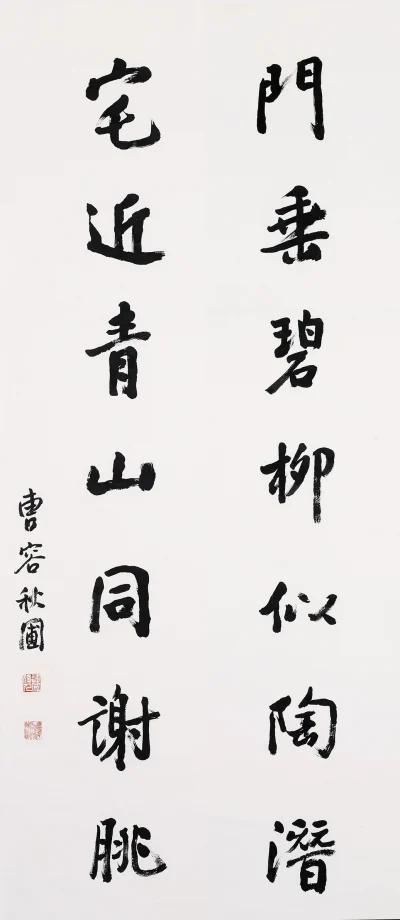 門垂碧柳似陶潛
宅近青山同謝朓
曹容秋圃